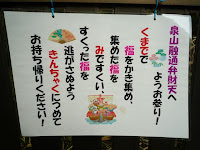 泉山融通弁財天へ
ようお参り！
くまでで
福をかき集め、
集めた福を
みですくい、
すくった福を
逃がさぬよう
きんちゃくにつめて
お持ち帰りください！